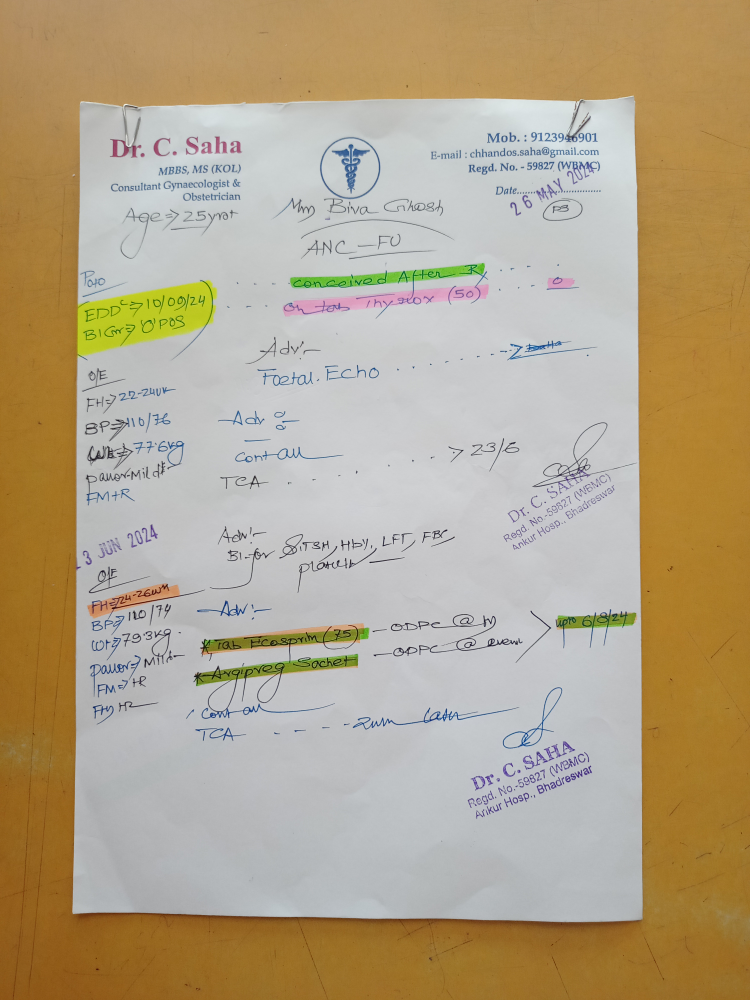 Dr. C. Saha
MBBS, MS (KOL)
Consultant Gynaecologist &
Obstetrician
Mob. : 9123946901
E-mail : chhandos.saha@gmail.com
Regd. No. - 59827 (WBMC)
Date
26 MAY 2024
Age⇒25
Biva Ghosh
ANC - FU
P0+0
EDD ⇒10/09/24
⇒'O' POS
conceived After Rx
on tab Thyrox (50)
Adv:-
Foetal. Echo
O/E
FH⇒22-24wk
BP⇒110/76
⇒77.6kg
Pallor-Mild
FM+R
Adv
Cont all
TCA 23/6
Dr. C. SAHA
Regd. No.-59827 (WBMC)
Ankur Hosp., Bhadreswar
3 JUN 2024
Adv:-
Bl. for S.TSH, Hb%, LFT, FBS
O/E
FH⇒24-26wk
BP⇒110/74
Wt⇒79.3kg
Pallor⇒Mild
FM⇒+R
Adv:-
* Tab Ecosprin (75) - ODPC @
* Argipreg Sachet - ODPC @
upto 6/8/24
Cont all
TCA - - - -
Dr. C. SAHA
Regd. No.-59827 (WBMC)
Ankur Hosp., Bhadreswar